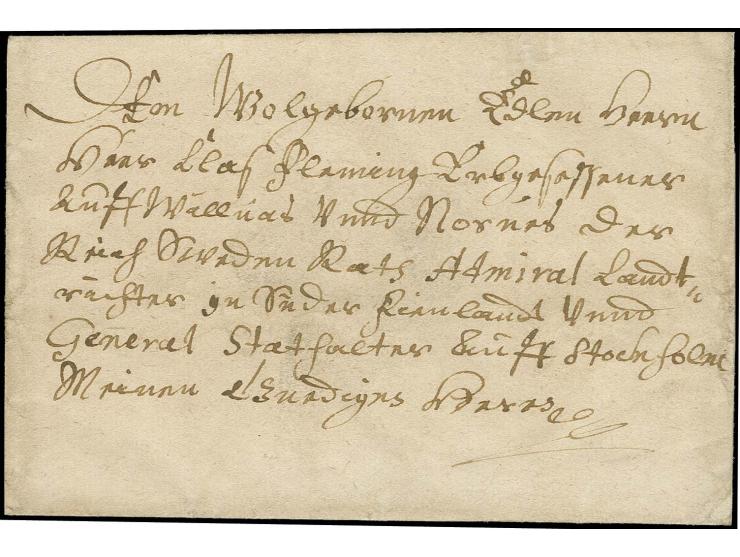 Dem Wolgebornen Edlen Herrn
Herr Clas Fleming Erbgesessener
Auff Willnäs Vnnd Nornes Der
Reich Sweden Rath Admiral Landt-
richter in Süder Finlandt Vnnd
General Stathalter Auff Stockholm
Meinen Gnedigen Herren